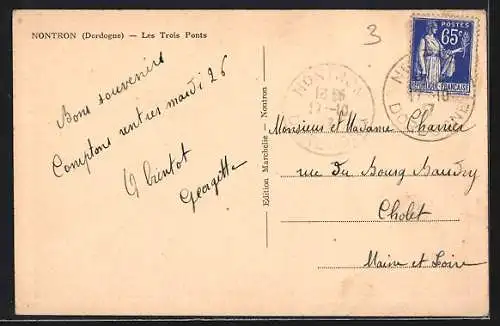 NONTRON (Dordogne) — Les Trois Ponts
3
Bons souvenirs
Comptons rentrer mardi 26
A bientot
Georgette
Edition Marcheliє - Nontron
POSTES
65c
REPUBLIQUE FRANÇAISE
NONTRON
17-10
DORDOGNE
Monsieur et Madame Charrier
rue du Bourg Baudry
Cholet
Maine et Loire